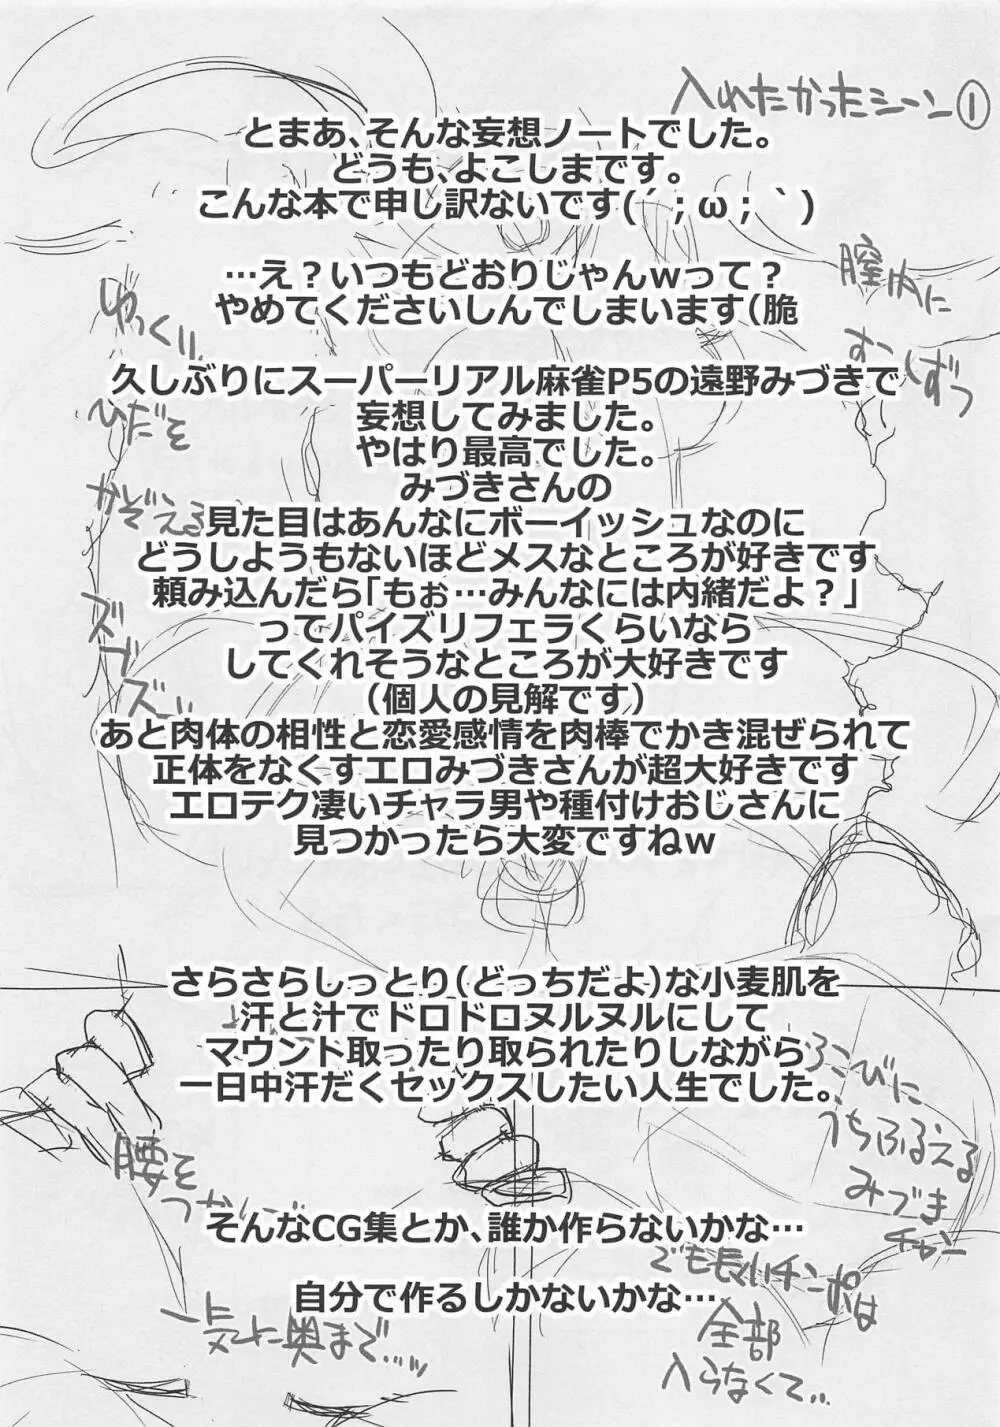 入れたかったシーン①
とまあ、そんな妄想ノートでした。
どうも、よこしまです。
こんな本で申し訳ないです(´；ω；｀)
…え？いつもどおりじゃんwって？
やめてくださいしんでしまいます(脆
膣内に
すこしずつ
ゆっくり
ひだを
かぞえる
ズズズ…
久しぶりにスーパーリアル麻雀P5の遠野みづきで
妄想してみました。
やはり最高でした。
みづきさんの
見た目はあんなにボーイッシュなのに
どうしようもないほどメスなところが好きです
頼み込んだら「もぉ…みんなには内緒だよ？」
ってパイズリフェラくらいなら
してくれそうなところが大好きです
（個人の見解です）
あと肉体の相性と恋愛感情を肉棒でかき混ぜられて
正体をなくすエロみづきさんが超大好きです
エロテク凄いチャラ男や種付けおじさんに
見つかったら大変ですねw
さらさらしっとり（どっちだよ）な小麦肌を
汗と汁でドロドロヌルヌルにして
マウント取ったり取られたりしながら
一日中汗だくセックスしたい人生でした。
よろこびに
うちふるえる
みづき
チャン
腰を
そんなCG集とか、誰か作らないかな…
自分で作るしかないかな…
でも長くいチンポは
全部
入らなくて‥
一気に奥まで…ッ